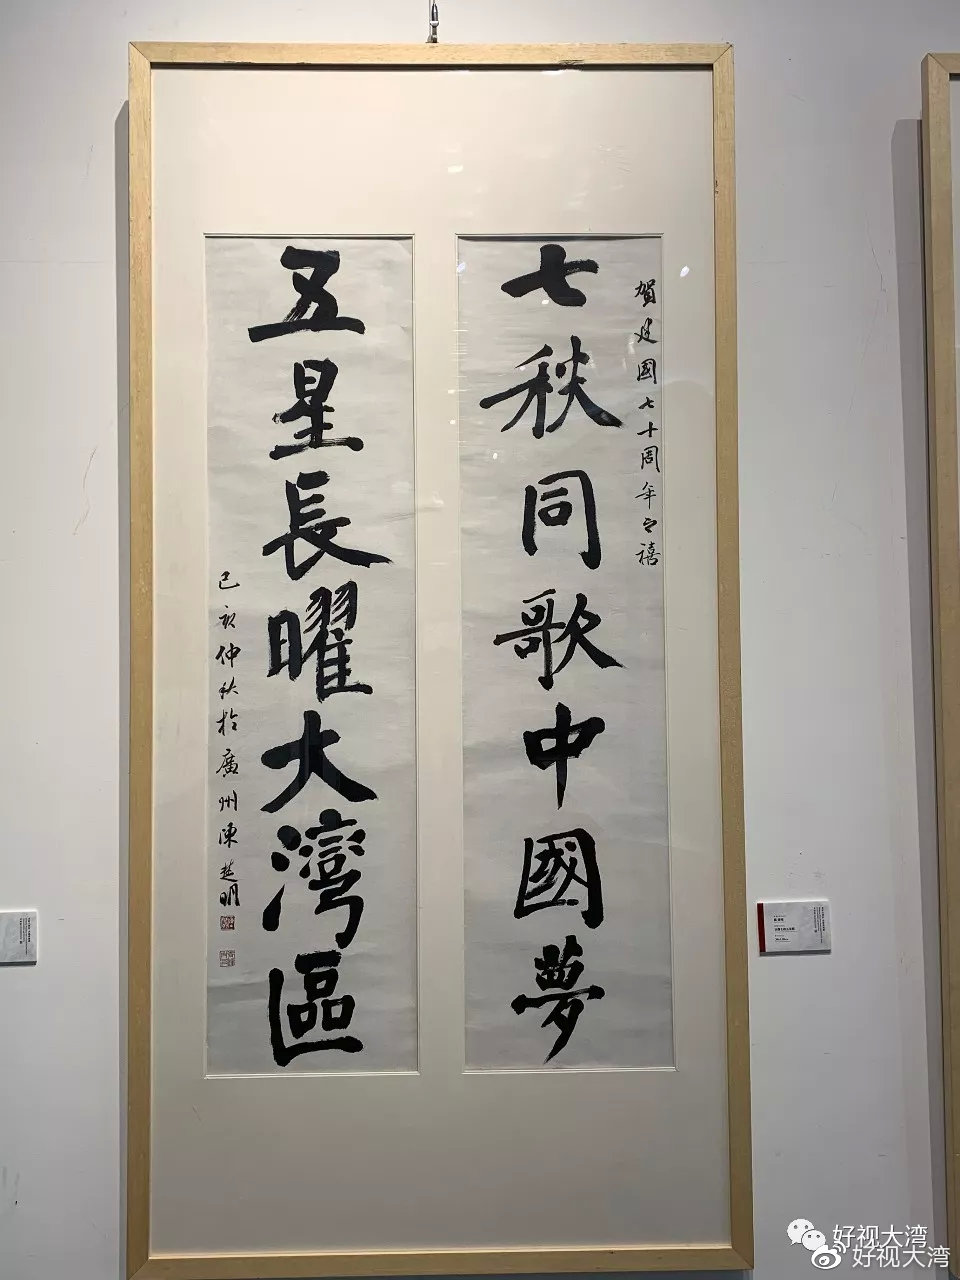 賀建國七十周年之禧
七秩同歌中國夢
五星長曜大灣區
己亥仲秋於廣州陳楚明
好视大湾
好视大湾